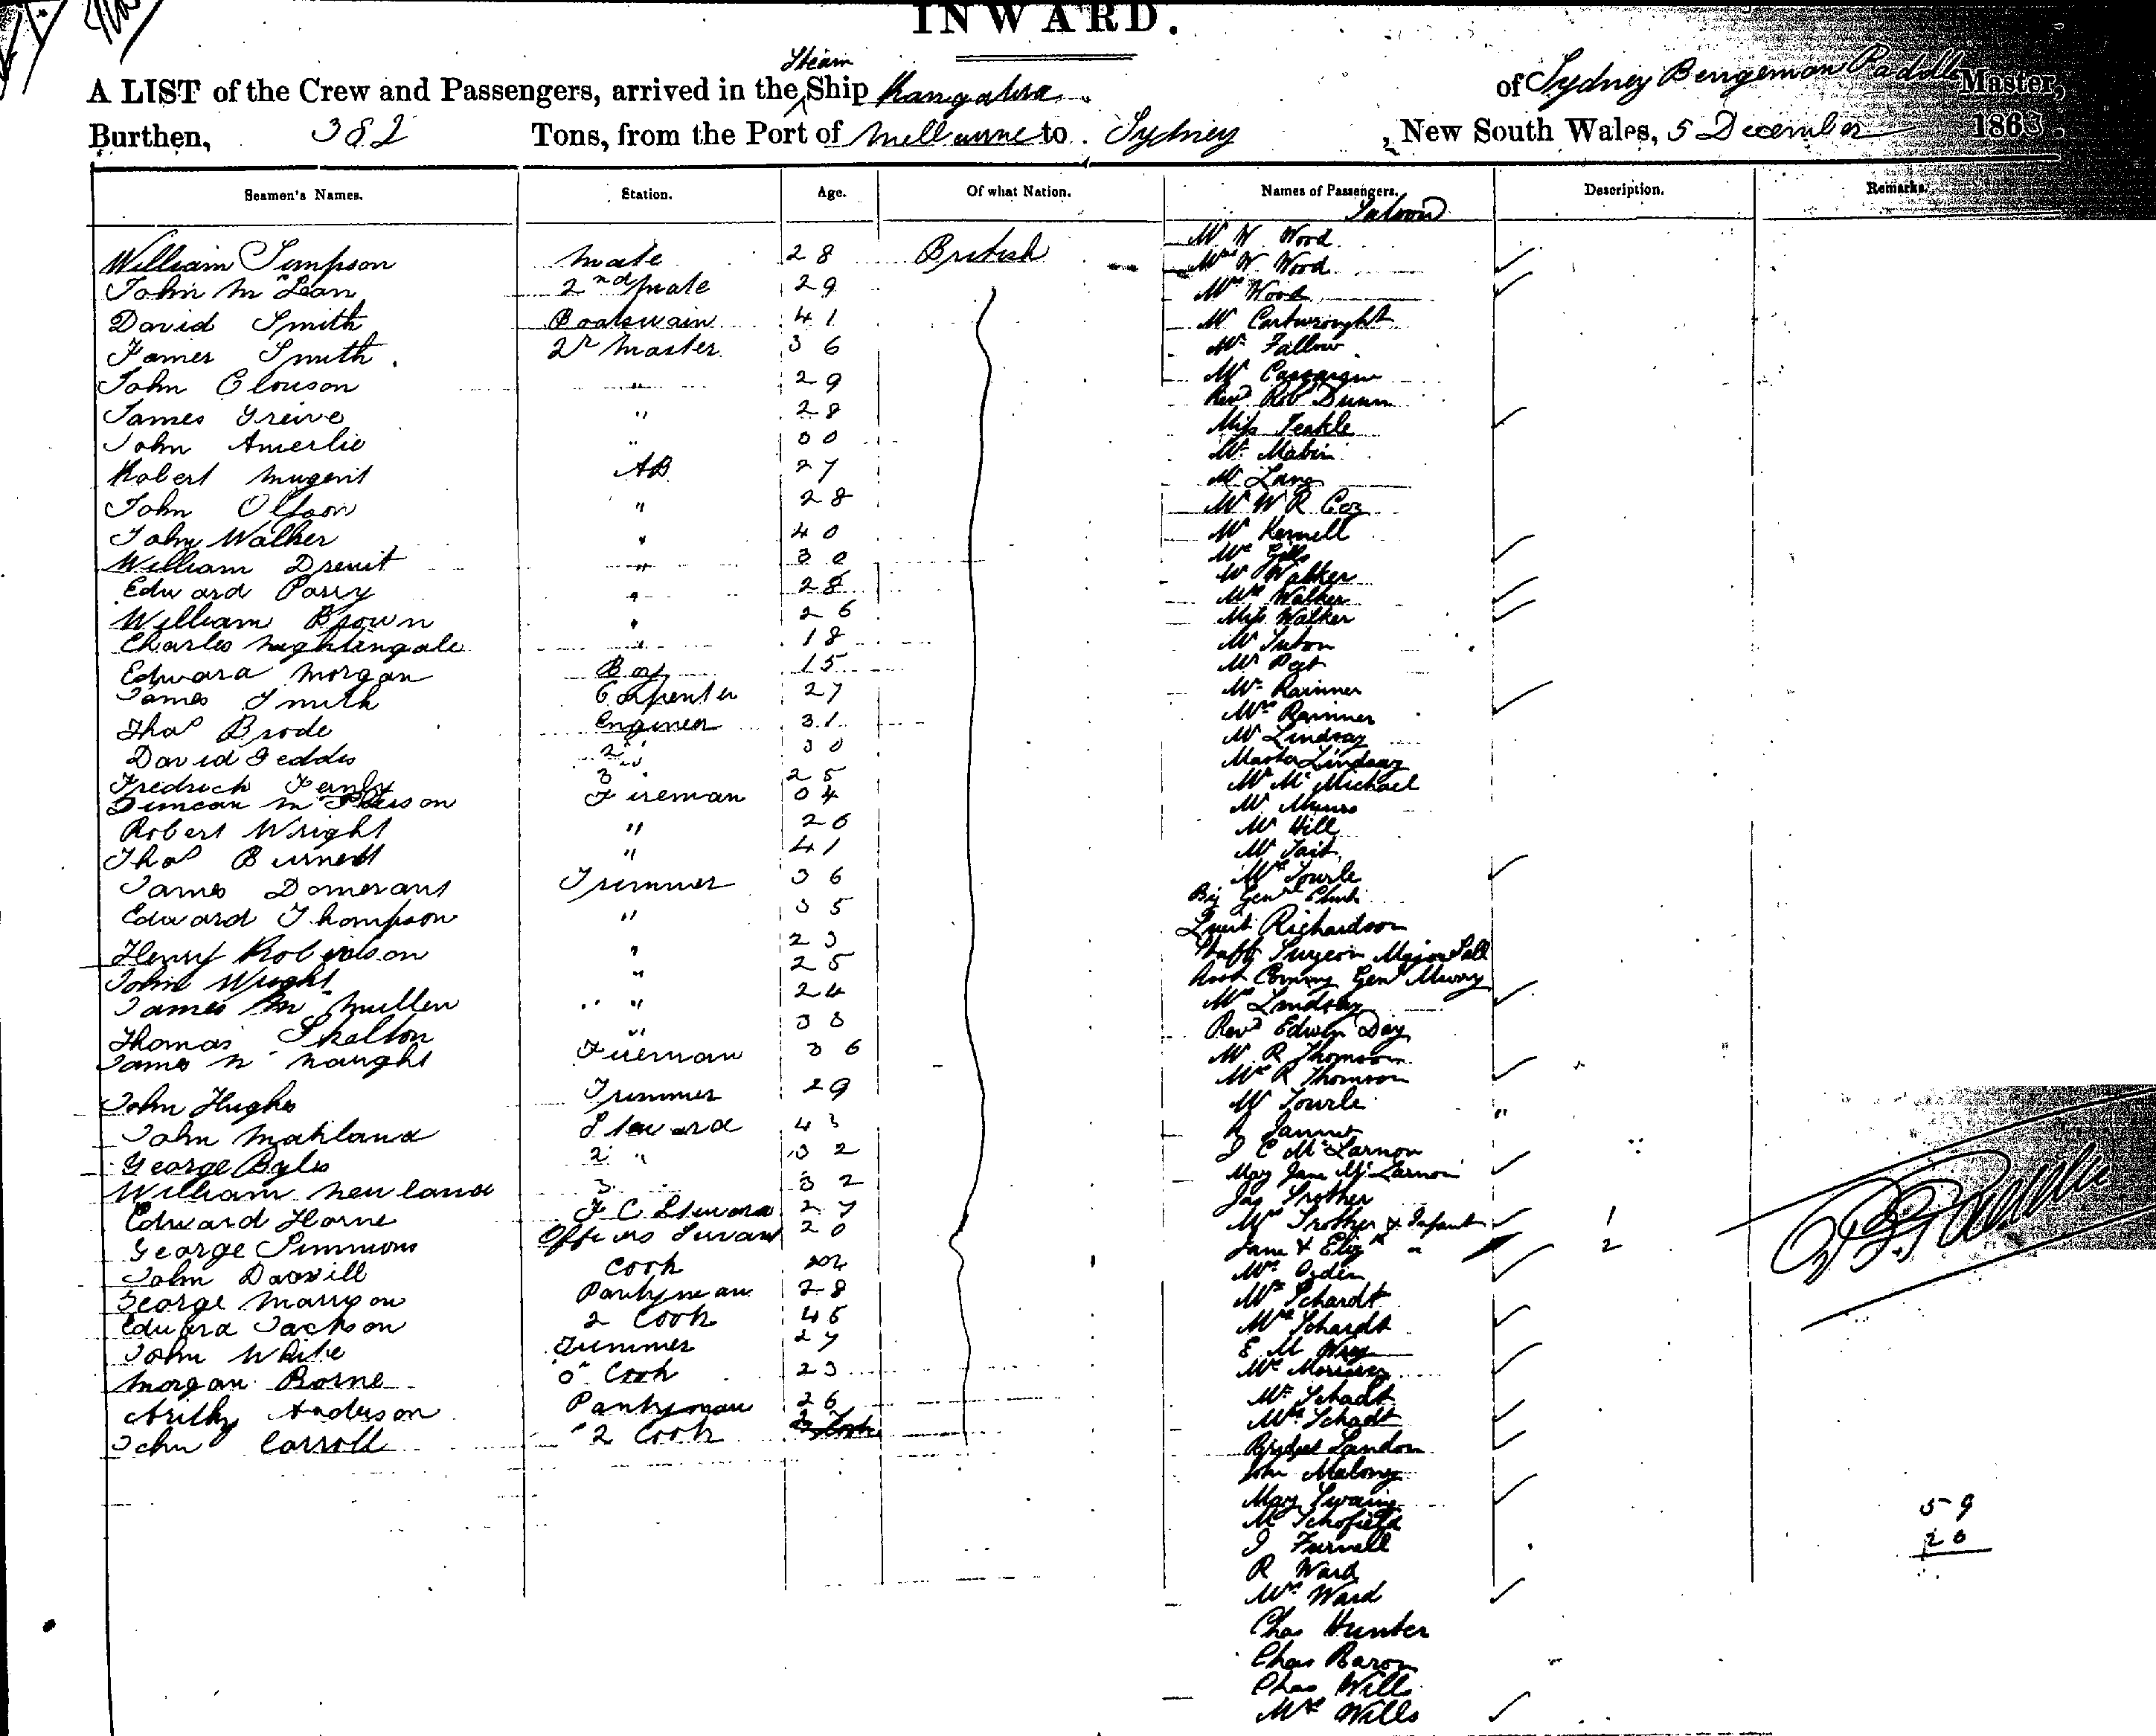 INWARD.
Steam
A LIST of the Crew and Passengers, arrived in the Ship of Sydney Master,
Burthen, 382 Tons, from the Port of Melbourne to Sydney, New South Wales, 5 December 1863.
Seamen's Names. Station. Age. Of what Nation. Names of Passengers. Description. Remarks.
Saloon
Mr W Wood
William Simpson Mate 28 British Mrs W Wood
John McLean 2nd Mate 29 Mrs Wood
David Smith Boatswain 41 Mr Cartwright
James Smith 36 Mr Fallow
John Clouson " 29 Mr
James Greive " 28 Revd Dunn
John Amerlie " 30 Miss Teakle
Robert Nugent AB 27 Mr Mabin
John " 28 Mr Lang
John Walker " 40 Mr W R Cox
William " 30 Mr Kernell
Edward Parry " 28 Mrs
William Brown " 26 Mr Walker
Charles Nightingale " 18 Mrs Walker
Edward Morgan Boy 15 Miss Walker
James Smith Carpenter 27 Mr
Thos Brode Engineer 31 Mr
David Geddes 2 " 30 Mr Rainner
Fredrick 3 " 25 Mrs Rainner
Duncan McPherson Fireman 34 Mr Lindsay
Robert Wright " 26 Master Lindsay
Thos Burnett " 41 Mr McMichael
James Trimmer 36 Mr Munro
Edward Thompson " 35 Mr Hill
Henry Robinson " 23 Mr Tait
John Wright " 25 Mrs Tourle
James McMullen " 24 Genl
Thomas Skelton " 33 Lieut Richardson
James McNaught Fireman 36 Staff Surgeon Major
John Hughes Trimmer 29 Genl
John Maitland Steward 43 Mrs Lindsay
George Byles 2 " 32 Revd Edwin Day
William Newland 3 " 32 Mr R Thomson
Edward Horne F C Steward 27 Mrs R Thomson
George Simmons Officers Servant 20 Mr Tourle
John Cook
George Pantryman 28 J C McLarnon
Edward Jackson 2 Cook 45 Mary Jane McLarnon
John White Trimmer 27 Jas Trother
Morgan 3 Cook 23 Mrs Trother & Infant 1
Anderson Pantryman 26 Jane & Eliz " 2
John Carroll 2 Cook Mrs Ogden
Mr Schardt
Mrs Schardt
E M Wray
Mrs
Mr Schadt
Mrs Schadt
Bridget Landon
John Malony
Mary Swain
Mr Schofield
J Furnell
R Ward
Mrs Ward
Chas Hunter
Chas Baron
Chas Wills
Mrs Wills
59
20